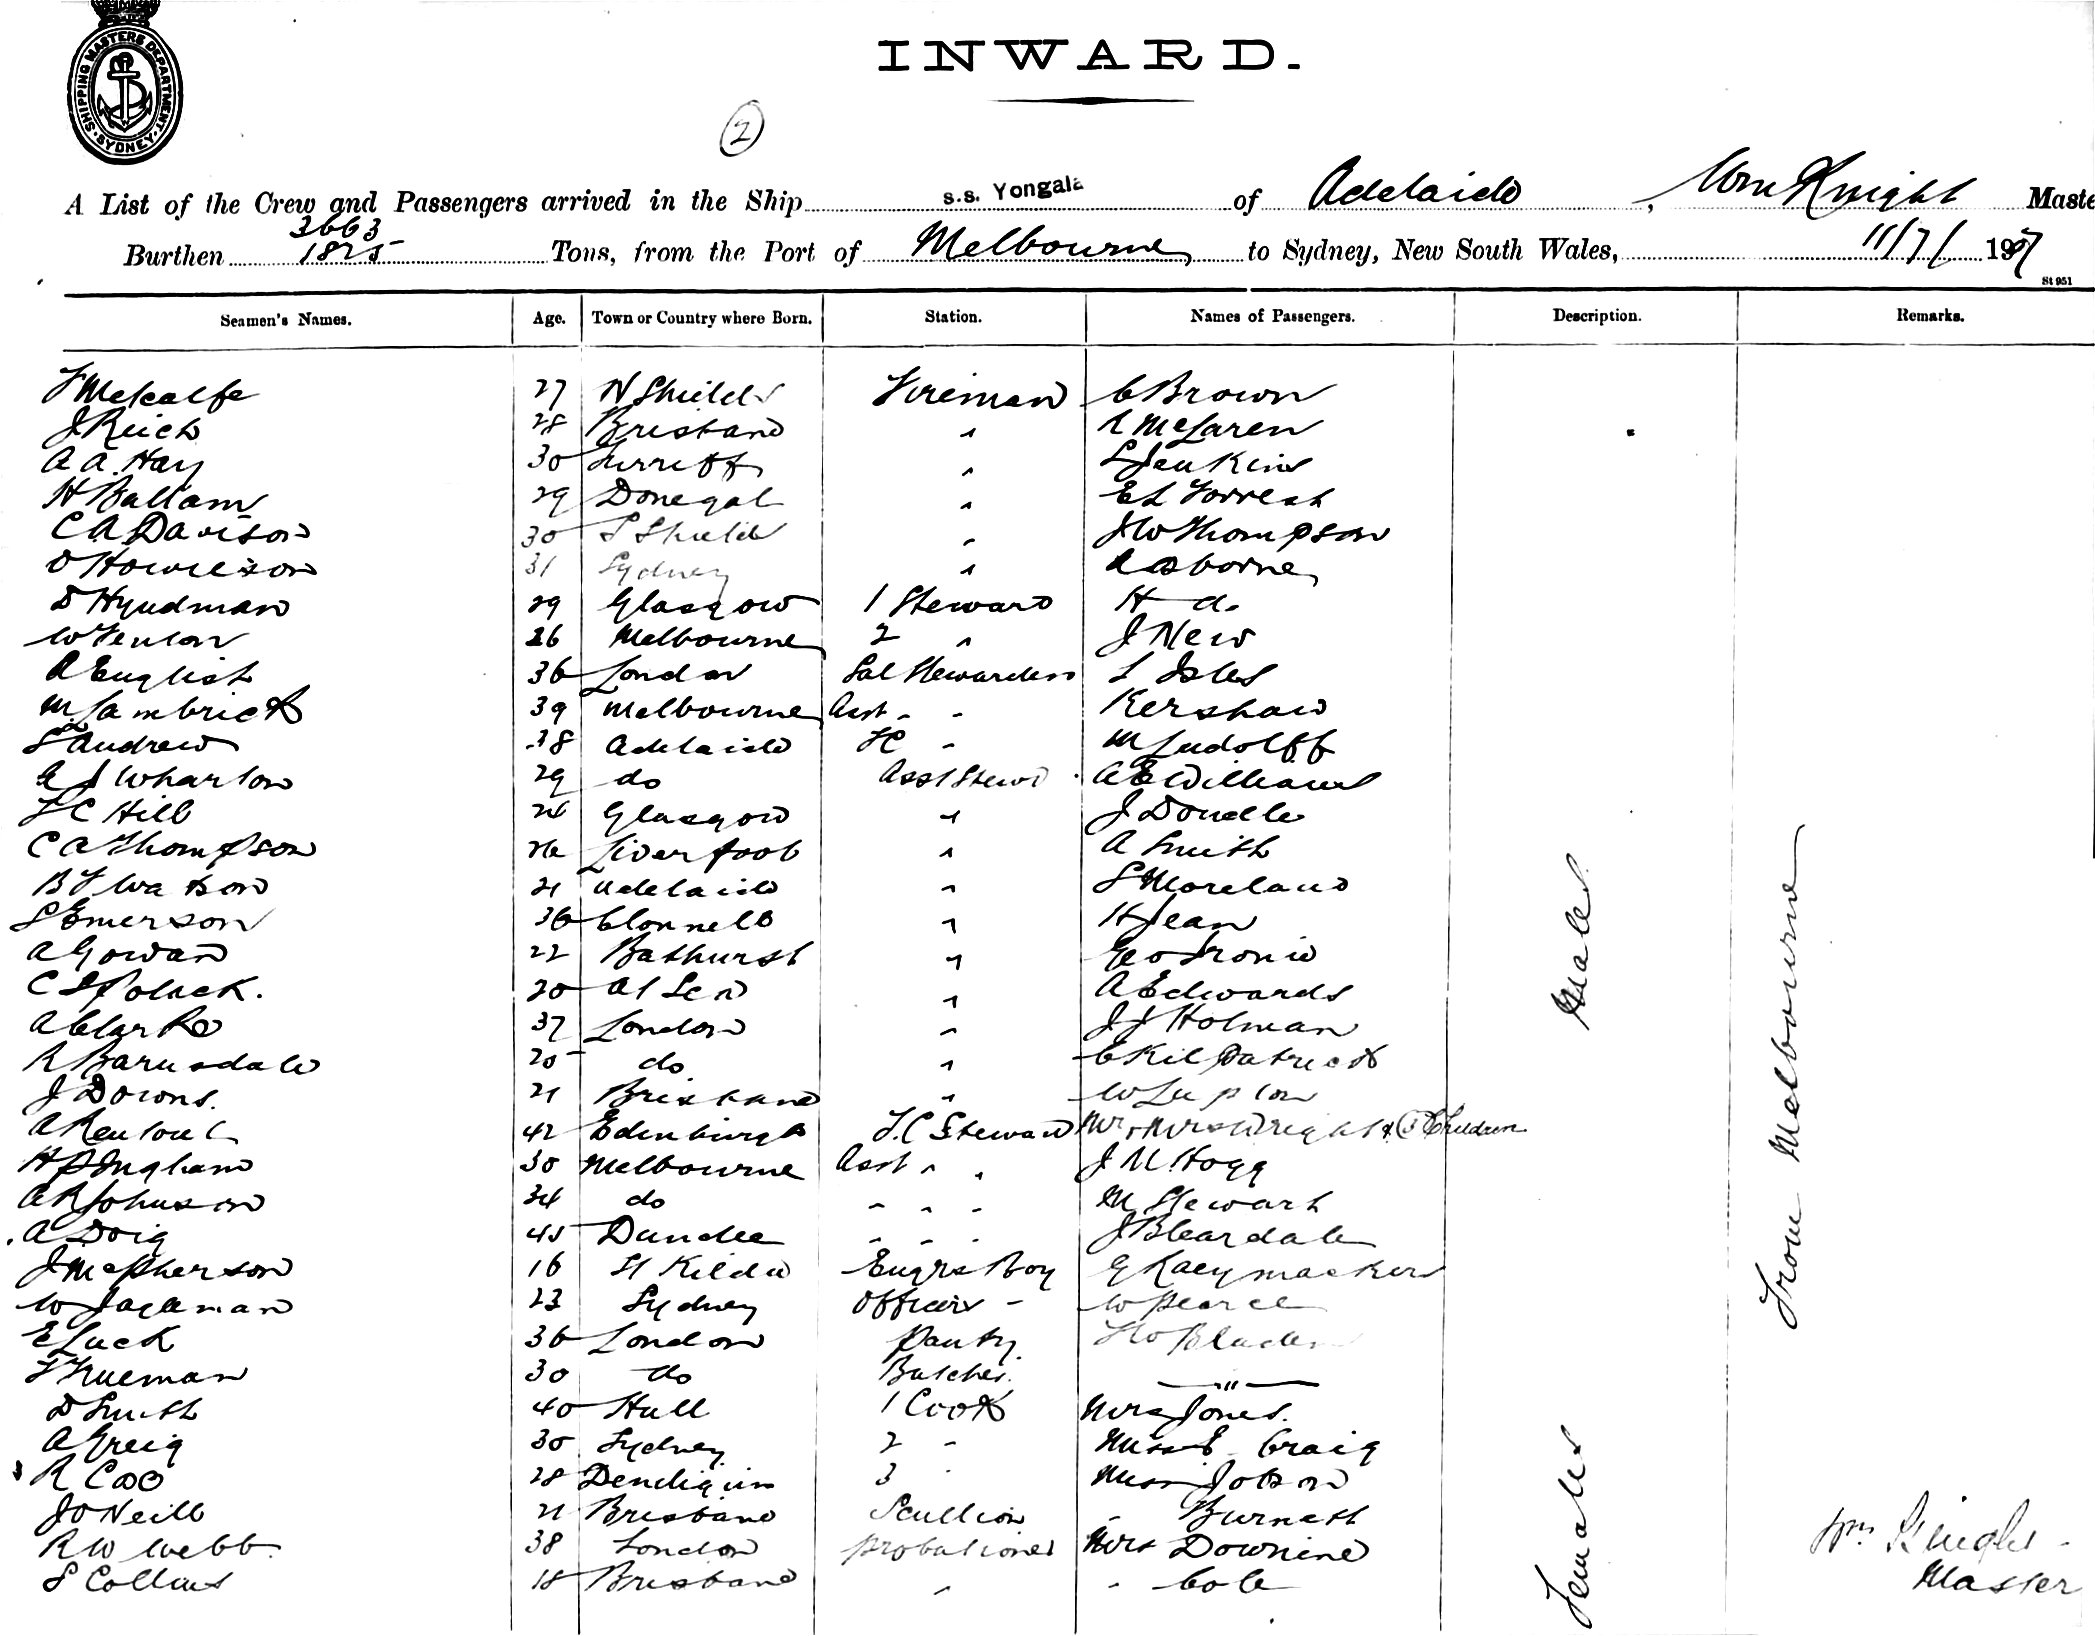 SHIPPING MASTERS DEPARTMENT · SYDNEY ·
INWARD.
2
A List of the Crew and Passengers arrived in the Ship s.s. Yongala of Adelaide, Wm Knight Maste
3663
Burthen 1825 Tons, from the Port of Melbourne to Sydney, New South Wales, 11/7/1907
St 951
Seamen's Names. Age. Town or Country where Born. Station. Names of Passengers. Description. Remarks.
F Metcalfe 27 N Shields Fireman C Brown
J Reich 28 Brisbane " McLaren
A A Hay 30 Turriff " S Jenkins
H Ballam 29 Donegal " E L Forrest
C A Davison 30 S Shields " J W Thompson
D Howieson 31 Sydney " A Osborne
D Hyndman 29 Glasgow 1 Steward H do
W Fenton 26 Melbourne 2 " J New
A English 36 London Sal Stewardess L Isles
M Lambrick 39 Melbourne Asst " " Kershaw
S Andrew 38 Adelaide FC " M Ludolff
G J Wharton 29 do Asst Stewd A E Williams
F C Hill 24 Glasgow " J Doudle
C A Thompson 26 Liverpool " A Smith
B F Watson 21 Adelaide " S Moreland
S Emerson 36 " H Jean
A Gowan 22 Bathurst " Geo
C S Polack. 20 At Sea " A Edwards
A Clarke 37 London " J J Holman
R Barnsdale 20 do " C Kilpatrick
J Downs. 21 Brisbane " W Lupton
A Rentoul 42 Edinburgh F.C Steward Mr & Mrs Wright & Children
H P Ingham 30 Melbourne Asst " " J M Hogg
A R Johnson 34 do " " " M Stewart
A Doig 45 Dundee " " " J Bleardale
J McPherson 16 St Kilda Engrs Boy G Raeymaekers
W Jageman 23 Sydney Officers " W Pearce
E Luck 36 London Pantry
F Trueman 30 do Butcher. — " —
D Smith 40 Hull 1 Cook Mrs Jones.
A Greig 30 Sydney 2 " Miss E Craig
R Coo 28 Deniliquin 3 " Miss Jobson
J O'Neill 21 Brisbane Scullion " Burnett
R W Webb 38 London Probationer Mrs Downing
S Collins 18 Brisbane " " Cole
Males
Females
From Melbourne
Wm Knight
Master